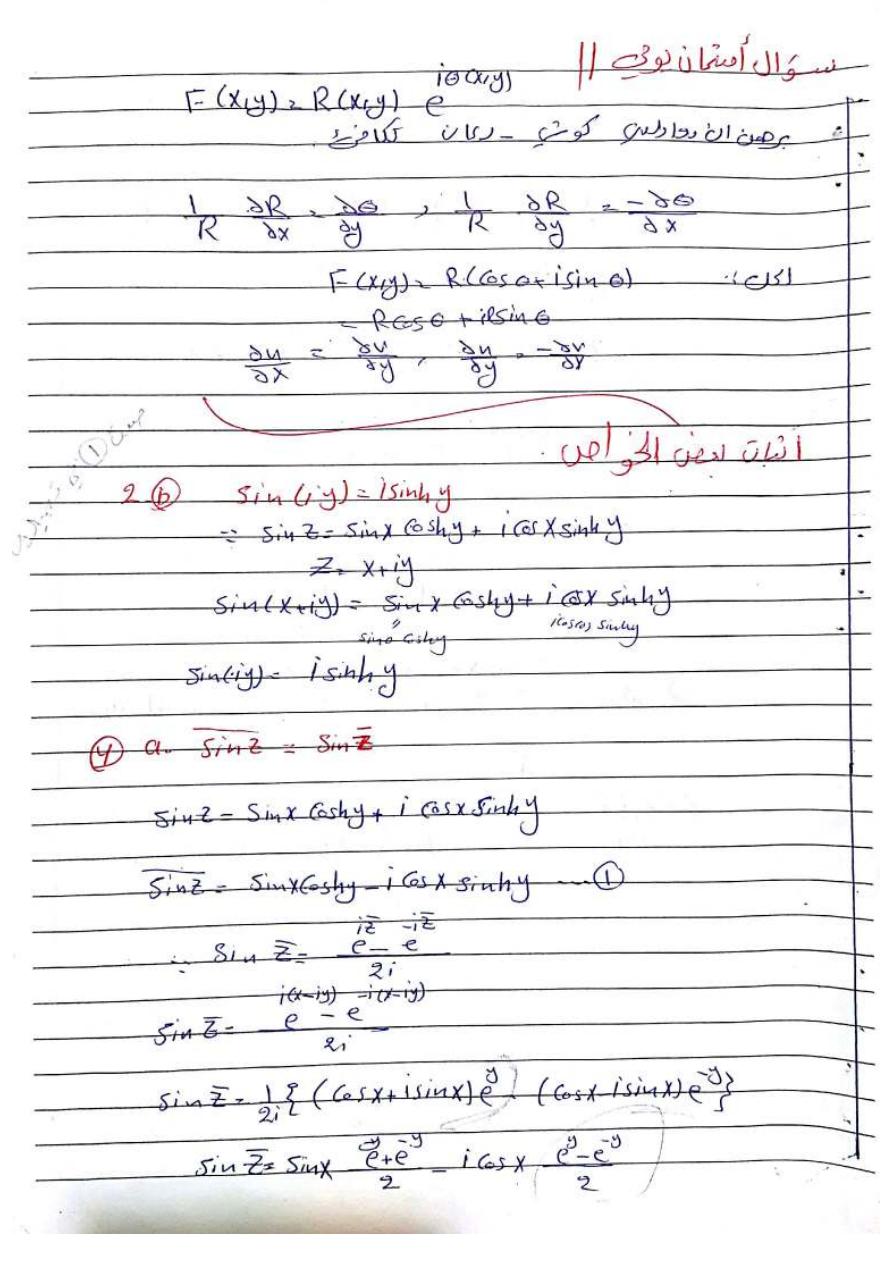 سؤال أمتحان يومي //
F(x,y) = R(x,y) e^{iθ(x,y)}
برهن ان معادلتي كوشي - ريمان تكافئ
\frac{1}{R} \frac{∂R}{∂x} = \frac{∂θ}{∂y} , \frac{1}{R} \frac{∂R}{∂y} = \frac{-∂θ}{∂x}
الحل:
F(x,y) = R(cos θ + i sin θ)
= R cos θ + i R sin θ
\frac{∂u}{∂x} = \frac{∂v}{∂y} , \frac{∂u}{∂y} = \frac{-∂v}{∂x}
اثبات بعض الخواص .
2 ⓑ sin(iy) = i sinh y
∵ sin z = sin x cosh y + i cos x sinh y
z = x+iy
sin(x+iy) = sin x cosh y + i cos x sinh y
sin 0 cosh y i cos(0) sinh y
sin(iy) = i sinh y
④ a. \overline{sin z} = sin \overline{z}
sin z = sin x cosh y + i cos x sinh y
\overline{sin z} = sin x cosh y - i cos x sinh y ---- ①
∵ sin \overline{z} = \frac{e^{i\overline{z}} - e^{-i\overline{z}}}{2i}
sin \overline{z} = \frac{e^{i(x-iy)} - e^{-i(x-iy)}}{2i}
sin \overline{z} = \frac{1}{2i} { (cos x + i sin x) e^{y} - (cos x - i sin x) e^{-y} }
sin \overline{z} = sin x \frac{e^{y} + e^{-y}}{2} - i cos x \frac{e^{y} - e^{-y}}{2}